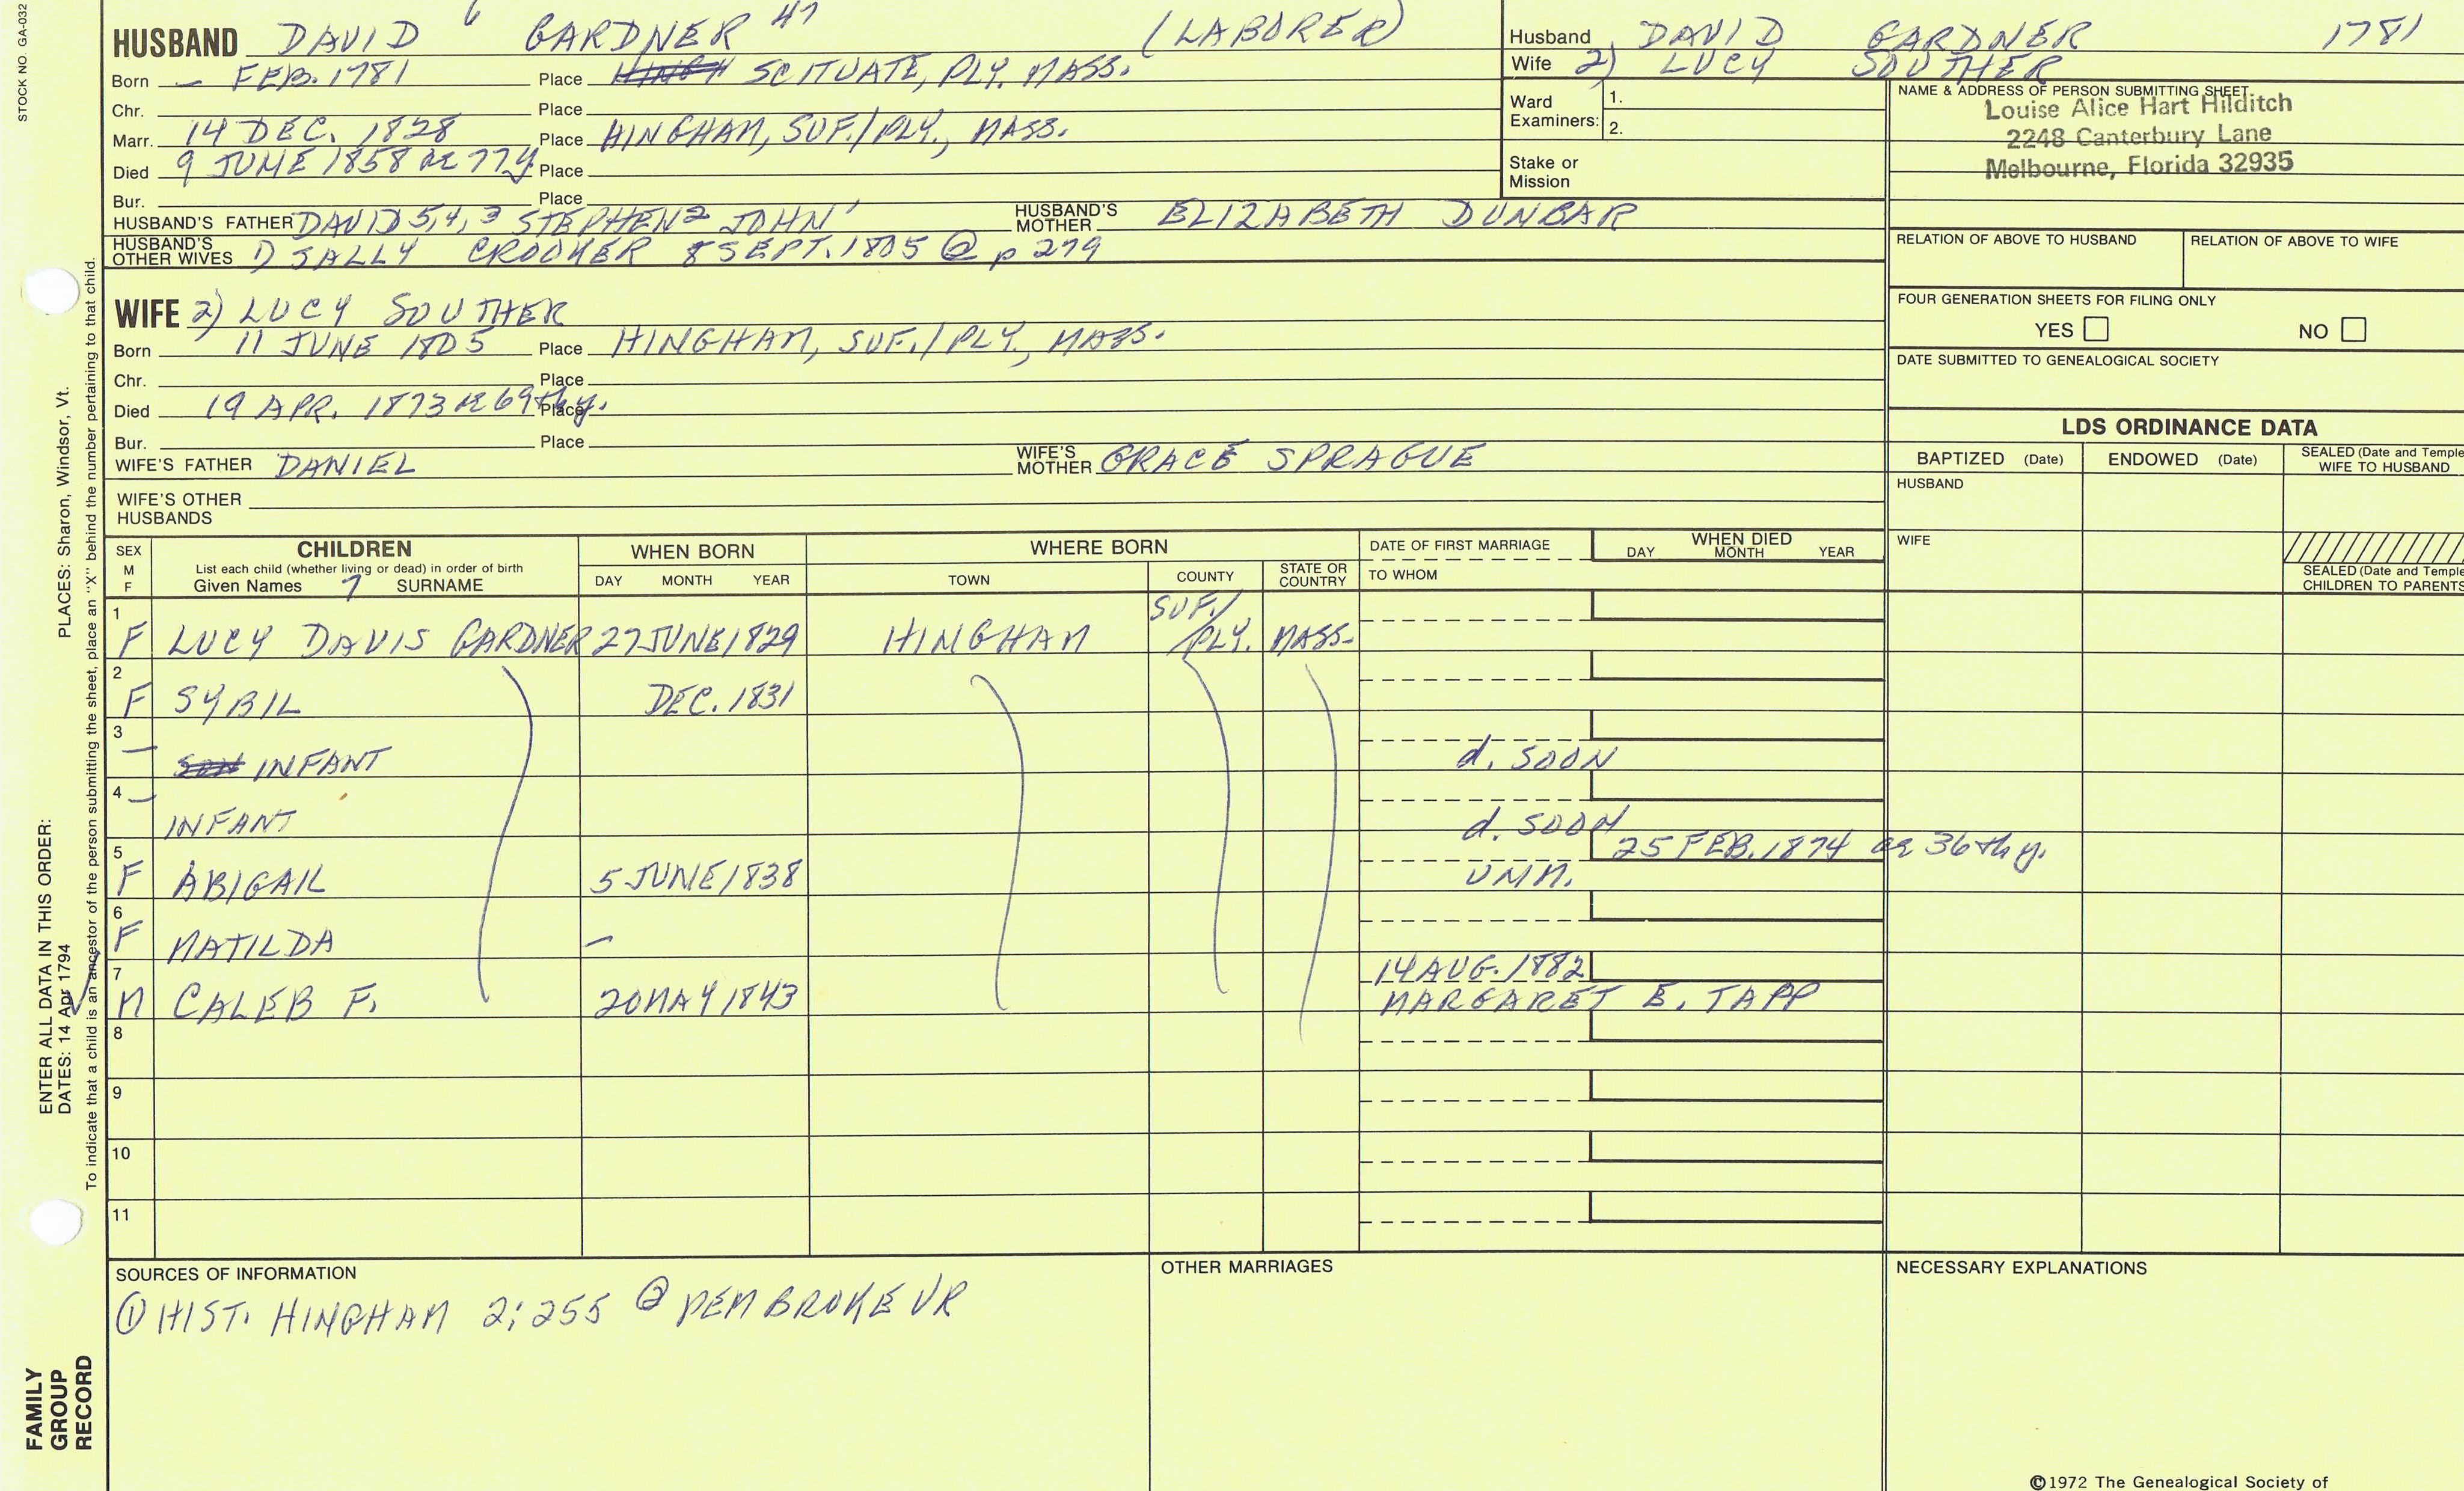 STOCK NO. GA-032
HUSBAND DAVID 6 GARDNER 47 (LABORER)
Born - FEB. 1781 Place HINGH SCITUATE, PLY. MASS.
Chr. Place
Marr. 14 DEC. 1828 Place HINGHAM, SUF./PLY., MASS.
Died 9 JUNE 1858 AE 77y Place
Bur. Place
HUSBAND'S FATHER DAVID 5,4,3 STEPHEN 2 JOHN 1 HUSBAND'S MOTHER ELIZABETH DUNBAR
HUSBAND'S OTHER WIVES 1) SALLY CROOKER 8 SEPT. 1805 @ p 279
WIFE 2) LUCY SOUTHER
Born 11 JUNE 1805 Place HINGHAM, SUF./PLY., MASS.
Chr. Place
Died 19 APR. 1873 AE 69th y. Place
Bur. Place
WIFE'S FATHER DANIEL WIFE'S MOTHER GRACE SPRAGUE
WIFE'S OTHER HUSBANDS
Husband DAVID GARDNER 1781
Wife 2) LUCY SOUTHER
Ward Examiners: 1.
2.
Stake or Mission
NAME & ADDRESS OF PERSON SUBMITTING SHEET
Louise Alice Hart Hilditch
2248 Canterbury Lane
Melbourne, Florida 32935
RELATION OF ABOVE TO HUSBAND RELATION OF ABOVE TO WIFE
FOUR GENERATION SHEETS FOR FILING ONLY
YES NO
DATE SUBMITTED TO GENEALOGICAL SOCIETY
LDS ORDINANCE DATA
BAPTIZED (Date) ENDOWED (Date) SEALED (Date and Temple
WIFE TO HUSBAND
HUSBAND
WIFE
SEALED (Date and Temple
CHILDREN TO PARENTS
SEX M F CHILDREN WHEN BORN WHERE BORN DATE OF FIRST MARRIAGE WHEN DIED
List each child (whether living or dead) in order of birth
Given Names 7 SURNAME DAY MONTH YEAR TOWN COUNTY STATE OR COUNTRY TO WHOM DAY MONTH YEAR
1 F LUCY DAVIS GARDNER 27 JUNE 1829 HINGHAM SUF./PLY. MASS.
2 F SYBIL DEC. 1831
3 - SON INFANT d. SOON
4 - INFANT d. SOON
5 F ABIGAIL 5 JUNE 1838 UNM. 25 FEB. 1874 ae 36th y.
6 F MATILDA -
7 M CALEB F. 20 MAY 1843 14 AUG. 1882
MARGARET E. TAPP
8
9
10
11
SOURCES OF INFORMATION OTHER MARRIAGES NECESSARY EXPLANATIONS
① HIST. HINGHAM 2:255 ② PEMBROKE VR
©1972 The Genealogical Society of
ENTER ALL DATA IN THIS ORDER:
PLACES: Sharon, Windsor, Vt.
DATES: 14 Apr 1794
To indicate that a child is an ancestor of the person submitting the sheet, place an "X" behind the number pertaining to that child.
FAMILY
GROUP
RECORD